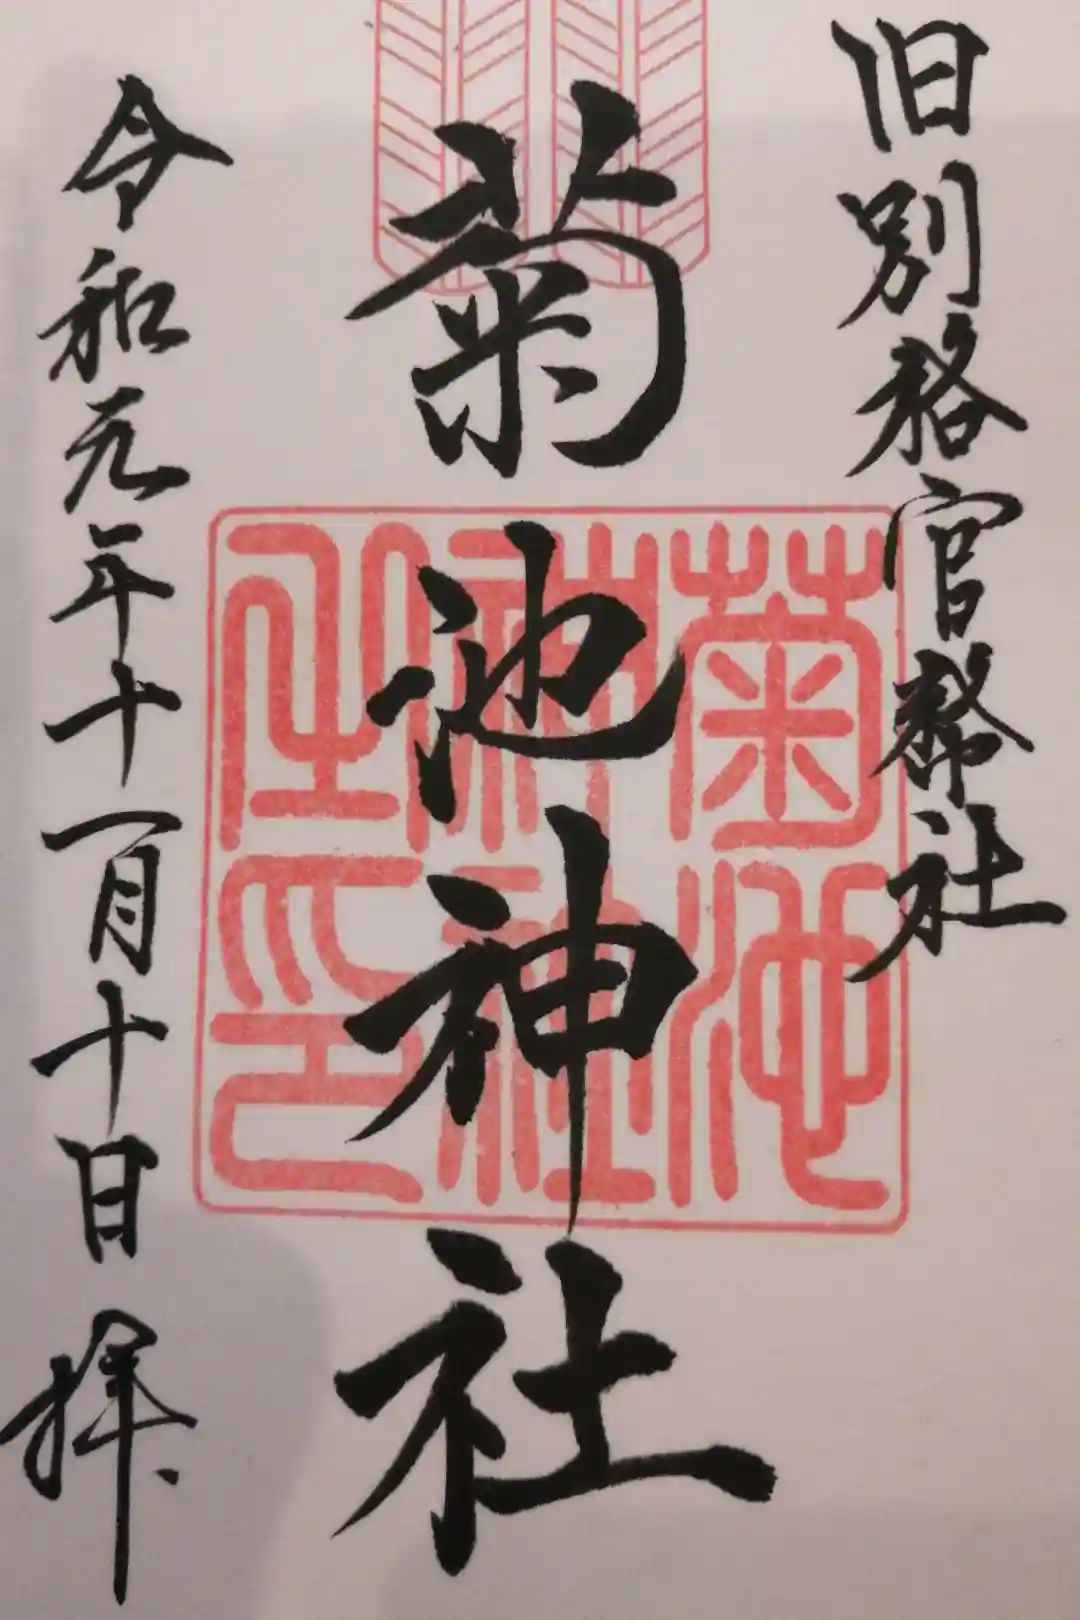 旧別格官幣社
菊池神社
菊池神社之印
令和元年十一月十日 拝